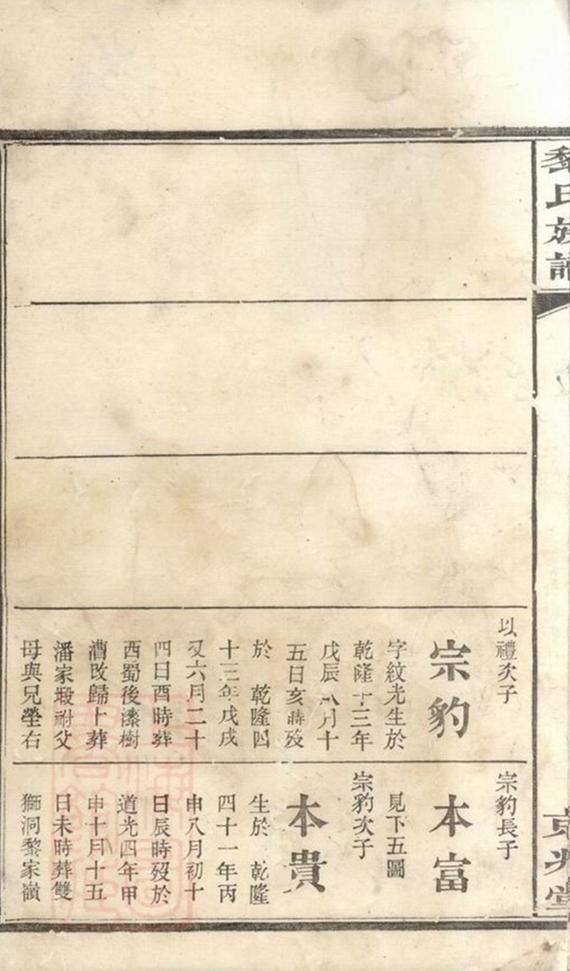 黎氏族譜
京兆堂
以禮次子
宗豹
字紋光生於
乾隆十三年
戊辰八月十
五日亥時歿
於 乾隆四
十三年戊戌
又六月二十
四日酉時葬
西蜀後漆樹
漕改歸土葬
潘家塅祔父
母與兄塋右
宗豹長子
本富
見下五圖
宗豹次子
本貴
生於 乾隆
四十一年丙
申八月初十
日辰時歿於
道光四年甲
申十月十五
日未時葬雙
獅洞黎家嶺